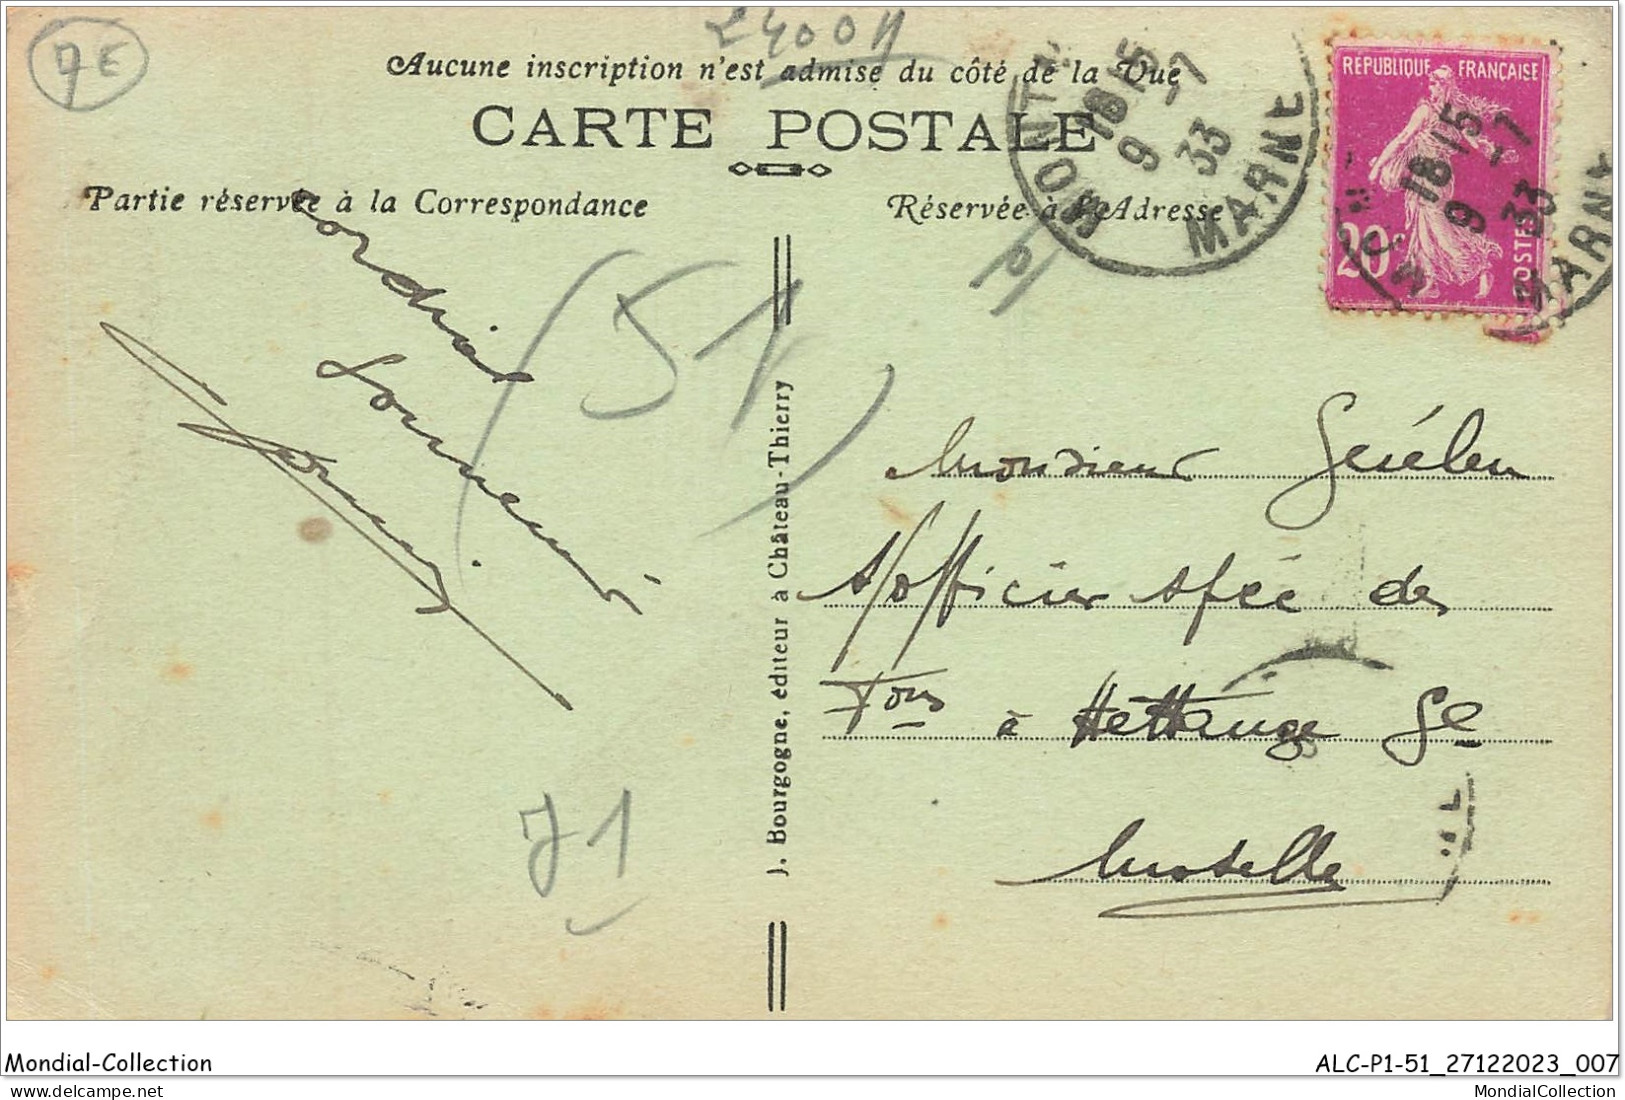 7E
2400H
Aucune inscription n'est admise du côté de la Vue
CARTE POSTALE
Partie réservée à la Correspondance
Réservée à l'Adresse
18 15
9 -7
33
MARNE
REPUBLIQUE FRANÇAISE
20c
POSTES
18 15
9 -7
33
MARNE
Cordial
Souvenir
(51)
J. Bourgogne, éditeur à Château-Thierry
Monsieur
S/officier Spéc des
Tons à Hettange Gde
Moselle
71
Mondial-Collection
ALC-P1-51_27122023_007
www.delcampe.net
MondialCollection